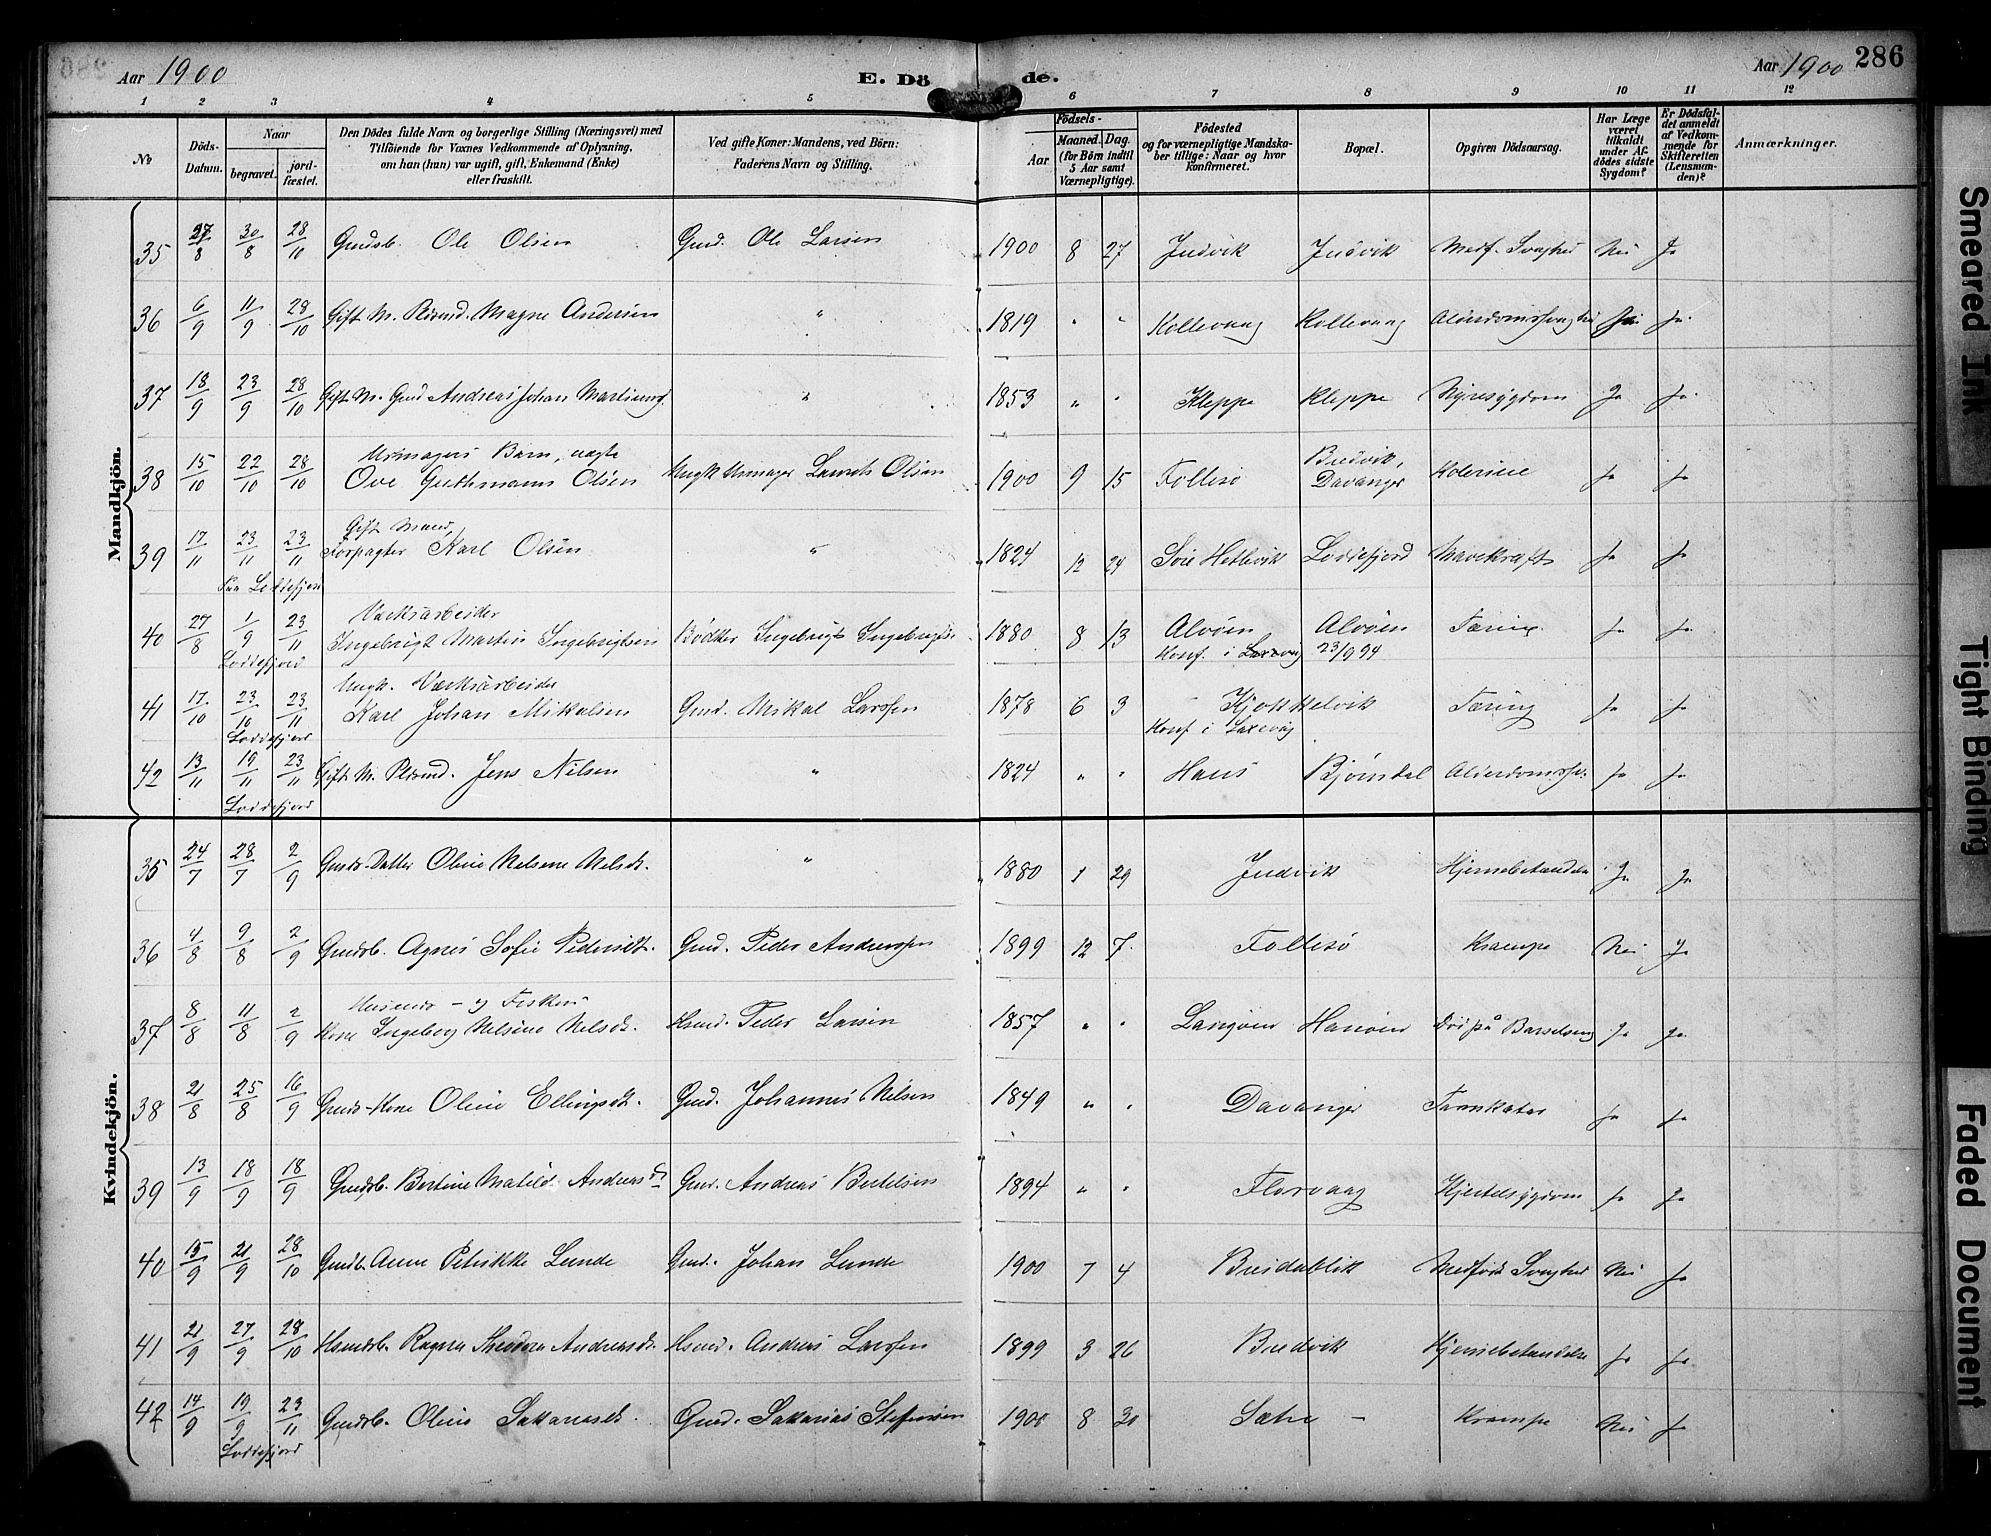 Aar 1900 E. Dö de. Aar 1900 286
1 2 3 4 5 6 7 8 9 10 11 12
No
Döds-Datum.
Naar
begravet.
jordfæstet.
Den Dödes fulde Navn og borgerlige Stilling (Næringsvei) med
Tilföiende for Voxnes Vedkommende af Oplysning,
om han (hun) var ugift, gift, Enkemand (Enke)
eller fraskilt.
Ved gifte Koner: Mandens, ved Börn:
Faderens Navn og Stilling.
Födsels-
Aar
Maaned. Dag.
(for Börn indtil
5 Aar samt
Værnepligtige).
Födested
og for værnepligtige Mandska-
ber tillige: Naar og hvor
konfirmeret.
Bopæl.
Opgiven Dödsaarsag.
Har Læge
været
tilkaldt
under Af-
dödes sidste
Sygdom?
Er Dödsfal-
det anmeldt
af Vedkom-
mende for
Skifteretten
(Lensman-
den)?
Anmærkninger.
Mandkjön.
35 27/8 30/8 28/10 Gmdsb. Ole Olsen Gmd. Ole Larsen 1900 8 27 Judvik Judvik Medf. Svaghed Nei Ja
36 6/9 11/9 28/10 Gift M. Magne Andersen " 1819 " " Kollevaag Kollevaag Ja.
37 18/9 23/9 28/10 Gift M. Gmd Andreas Johan " 1853 " " Kleppe Kleppe Nyresygdom Ja Ja.
38 15/10 22/10 28/10 Urmagers Barn, ægte
Ove Guthmann Olsen Ungk Urmager Laurits Olsen 1900 9 15 Follesø Bredvik,
Davanger Kolerine Ja Ja
39 17/11 23/11 23/11 Gift Mand,
Forpagter Karl Olsen " 1824 12 24 Loddefjord Mavekræft Ja Ja
Paa Loddefjord
40 27/8 1/9 23/11 Værksarbeider
Ingebrigt Martin Ingebrigtsen Bødker Ingebrigt Ingebrigtsen 1880 8 13 Alvøen Alvøen Tæring Ja Ja.
Loddefjord Konf. i Laxevåg 23/9 94
41 17/10 23/10 23/11 Ungk. Værksarbeider
Karl Johan Mikalsen Gmd. Mikal Larssen 1878 6 3 Tæring Ja Ja
Loddefjord Konf i Laxevåg
42 13/11 19/11 23/11 Gift M. Jens Nilsen " 1824 " " Haus Bjørndal Ja Ja
Loddefjord
Kvindekjön.
35 24/7 28/7 2/9 Gmds-Datter Oline Nilsine Nilsdt. " 1880 1 29 Judvik Hjernebetændelse Ja Ja
36 4/8 9/8 2/9 Gmdsb. Agnes Sofie Pedersdt. Gmd. Peder Andreassen 1899 12 7. Follesø Krampe Nei Ja
37 8/8 11/8 2/9 Husmds- og Fisker-
Kone Ingeborg Nilsine Nilsdt. Hsmd. Peder Larsen 1857 " " Langøen Hanøen Død på Barselseng Ja Ja.
38 21/8 25/8 16/9 Gmds-Kone Oline Ellingsdt. Gmd. Johannes Nilsen 1849 " " Davanger Tarmkatar Ja Ja
39 13/9 18/9 18/9 Gmdsb. Bertine Matild Andreasdt Gmd. Andreas Bertelsen 1894 " " Florvaag Kjertelsygdom Ja Ja
40 15/9 21/9 28/10 Gmdsb. Anna Lunde Gmd. Johan Lunde 1900 7 4 Breidablik Medfødt Svaghed Nei Ja
41 21/9 27/9 28/10 Hsmdsb. Ragna Theodora Andreasdt. Hsmd. Andreas Larssen 1899 3 26 Bredvik Hjernebetændelse Ja Ja
42 14/9 19/9 23/11 Gmdsb. Oline Sakariasdt. Gmd. Sakarias Steffensen 1900 8 30 Sætre - Krampe Nei Ja
Loddefjord
Smeared Ink
Tight Binding
Faded Document